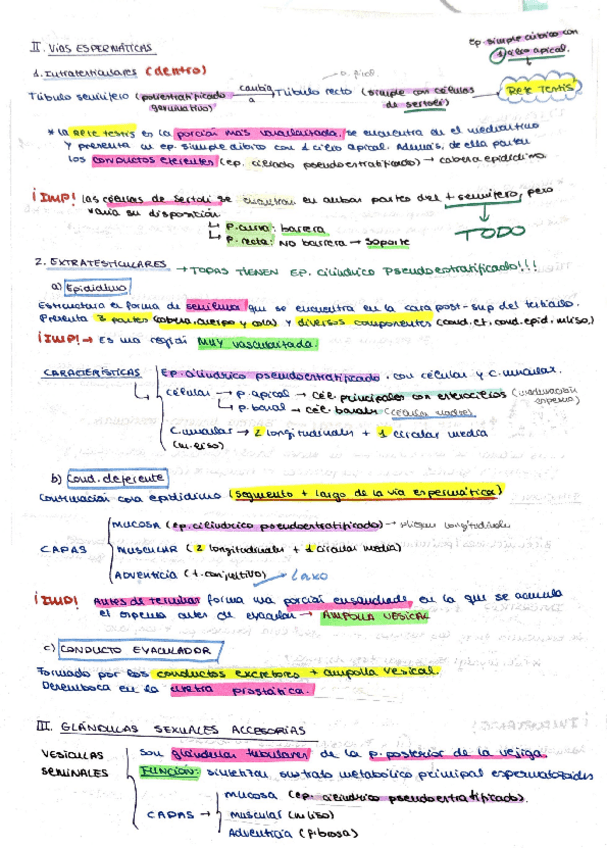 II. VÍAS ESPERMÁTICAS
ep. simple cúbico con 1 cilio apical.
1. Intratesticulares (dentro)
Túbulo seminífero (poliestratificado germinativo) cambia a Túbulo recto (simple con células de sertoli) → RETE TESTIS
* La RETE TESTIS es la porción más vascularizada, se encuentra en el mediastino
y presenta un ep. simple cúbico con 1 cilio apical. Además, de ella parten
los conductos eferentes (ep. ciliado pseudoestratificado) → cabeza epidídimo.
¡IMP! Las células de Sertoli se encuentran en ambas partes del t. seminífero, pero
varía su disposición
P. curva: barrera
P. recta: NO barrera → soporte
TODO
2. EXTRATESTICULARES → TODAS TIENEN EP. cilíndrico pseudoestratificado!!!
a) Epidídimo
Estructura en forma de semiluna que se encuentra en la cara post-sup del testículo.
Presenta 3 partes (cabeza, cuerpo y cola) y diversos componentes (cond. ef, cond. epid. m. liso.)
¡IMP! → Es una región MUY vascularizada.
CARACTERÍSTICAS
Ep. cilíndrico pseudoestratificado. con células y c. muscular.
células → p. apical → cél. principales con estereocilios (maduración esperma)
p. basal → cél. basales (células madres)
C. muscular → 2 longitudinales + 1 circular media
(m. liso)
b) Cond. deferente
Continuación cola epidídimo (segmento + largo de la vía espermática)
CAPAS
MUCOSA (ep. cilíndrico pseudoestratificado) → pliegues longitudinales
MUSCULAR (2 longitudinales + 1 circular media)
ADVENTICIA (t. conjuntivo) laxo
¡IMP! Antes de terminar forma una porción ensanchada, en la que se acumula
el esperma antes de eyacular → AMPOLLA VESICAL
c) CONDUCTO EYACULADOR
Formado por los conductos excretores + ampolla vesical.
Desemboca en la uretra prostática.
III. GLÁNDULAS SEXUALES ACCESORIAS
VESÍCULAS SEMINALES
Son glándulas tubulares de la p. posterior de la vejiga.
FUNCIÓN: sintetizar sustrato metabólico principal espermatozoides
CAPAS →
mucosa (ep. cilíndrico pseudoestratificado).
muscular (m. liso)
Adventicia (fibrosa)